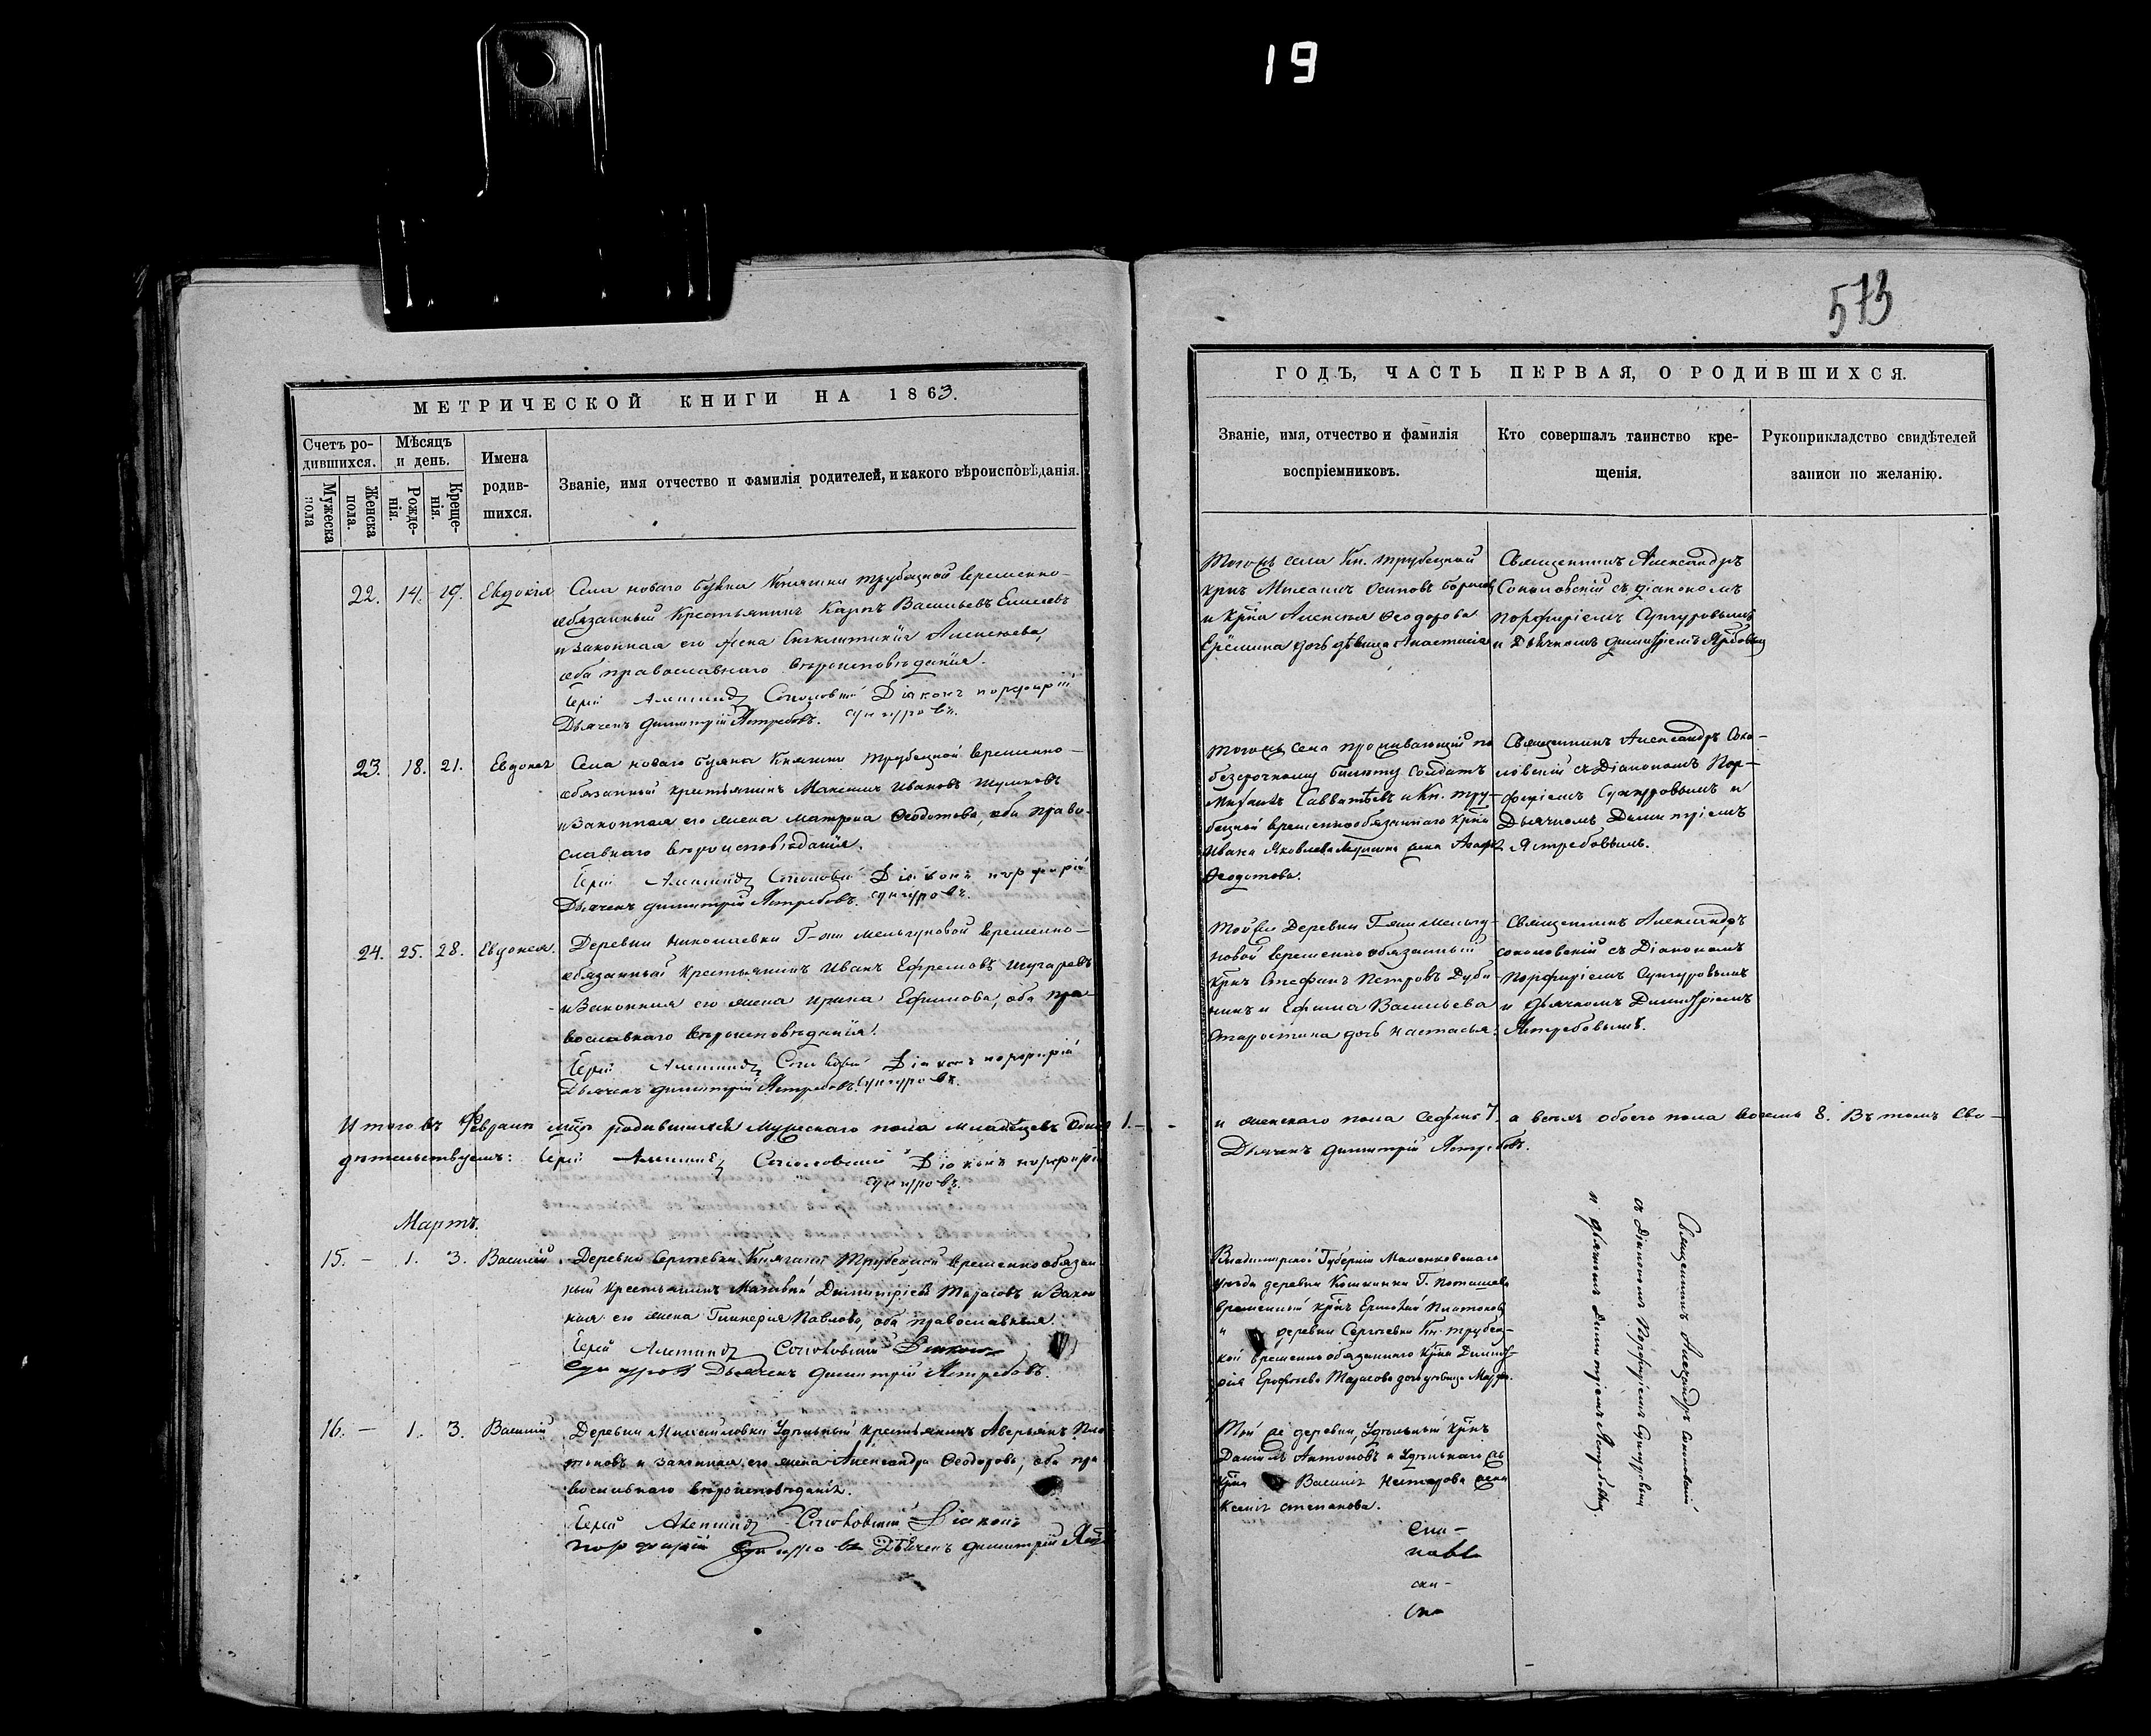 19
573
МЕТРИЧЕСКОЙ КНИГИ НА 1863.
Счетъ ро-
дившихся.
Мужеска
пола
Женска
пола.
Мѣсяцъ
и день.
Рожде-
нія.
Креще-
нія.
Имена
родив-
шихся.
Званіе, имя отчество и фамилія родителей, и какого вѣроисповѣданія.
22. 14. 19. Евдокія Села новаго Буяна Княгини Трубецкой временно-
обязанный Крестьянинъ Карпъ Васильевъ
и законная его жена Синклитикія Алексѣева,
оба православнаго вѣроисповѣданія.
Іерей Александръ Соколовскій Діаконъ порфирій
Дьячекъ Димитрій Ястребовъ. Сунгуровъ.
23. 18. 21. Села новаго Буяна Княгини Трубецкой временно-
обязанный крестьянинъ Максимъ Ивановъ
и законная его жена Матрона Ѳеодотова, оба право-
славнаго вѣроисповѣданія.
Іерей Александръ Соколовскій Діаконъ порфирій
Дьячекъ Димитрій Ястребовъ. Сунгуровъ.
24. 25. 28. Евдокея. Деревни Николаевки Г-жи Мельгуновой временно-
обязанный крестьянинъ Иванъ Ефремовъ
и законная его жена Ирина Ефимова, оба пра-
вославнаго вѣроисповѣданія.
Іерей Александръ Соколовскій Діаконъ порфирій
Дьячекъ Димитрій Ястребовъ. Сунгуровъ.
Итого въ Февралѣ родившихся мужескаго пола младенцевъ одинъ 1.
дѣтельствуемъ: Іерей Александръ Соколовскій Діаконъ порфирій
Сунгуровъ.
Мартъ.
15. — 1. 3. Василій. Деревни Сергѣевки Княгини Трубецкой временнообязан
ный Крестьянинъ Матвѣй Димитріевъ Тарасовъ и закон
ная его жена Гликерія Павлова, оба православныя.
Іерей Александръ Соколовскій Діаконъ
Сунгуровъ Дьячекъ Димитрій Ястребовъ.
16. — 1. 3. Василій Деревни Михайловки Удѣльный крестьянинъ Аверьянъ Пла
тоновъ и законная его жена Александра Ѳеодорова, оба пра
вославнаго вѣроисповѣданія.
Іерей Александръ Соколовскій Діаконъ
порфирій Сунгуровъ Дьячекъ Димитрій
ГОДЪ, ЧАСТЬ ПЕРВАЯ, О РОДИВШИХСЯ.
Званіе, имя, отчество и фамилія
воспріемниковъ.
Кто совершалъ таинство кре-
щенія.
Рукоприкладство свидѣтелей
записи по желанію.
Тогожъ села Кн. Трубецкой
крнъ Михаилъ Осиповъ
и крна Алексѣя Ѳеодорова
Ерёмина дочь дѣвица Анастасія
Священникъ Александръ
Соколовскій съ діакономъ
Порфиріемъ Сунгуровымъ
и Дьячкомъ Димитріемъ
Тогожъ села проживающій по
безсрочному билету солдатъ
Савватѣевъ и Кн. Тру-
бецкой временнообязаннаго крна
Ивана Яковлева жена
Ѳеодотова.
Священникъ Александръ Соко-
ловскій съ Діакономъ Пор-
фиріемъ Сунгуровымъ и
Дьячкомъ Димитріемъ
Ястребовымъ.
Той же Деревни Г-жи Мельгу-
новой временнообязанный
крнъ Стефанъ Петровъ Дуби
нинъ и Ефима Васильева
Старостина дочь Настасья.
Священникъ Александръ
Соколовскій съ Діакономъ
Порфиріемъ Сунгуровымъ
и Дьячкомъ Димитріемъ
Ястребовымъ.
и женскаго пола седмь 7. а всѣхъ обоего пола восемь 8. Въ томъ сви-
Дьячекъ Димитрій Ястребовъ.
Владимірской Губерніи Меленковскаго
уѣзда деревни Кошкинки Г.
временный крнъ Платоновъ
и деревни Сергѣевки Кн. Трубец-
кой временнообязаннаго крна Димит-
рія Ерофѣева Тарасова дочь дѣвица
Священникъ Александръ Соколовскій
съ Діакономъ Порфиріемъ Сунгуровымъ
и Дьячкомъ Димитріемъ Ястребовымъ
Той же деревни, Удѣльный крнъ
Даніилъ Антоновъ и Удѣльнаго
крна Василія Нестерова жена
Ксенія Степанова.